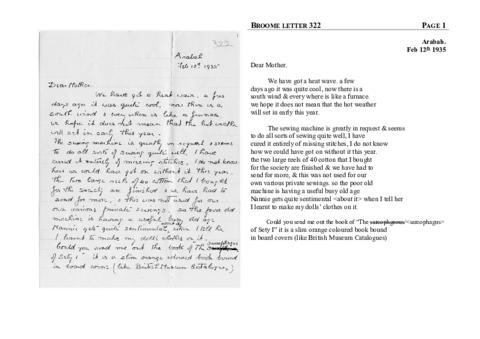 322
Arabah
Feb 12th 1935
Dear Mother.
We have got a heat wave. a few
days ago it was quite cool, now there is a
south wind & every where is like a furnace
we hope it does not mean that the hot weather
will set in early this year.
The sewing machine is greatly in request & seems
to do all sorts of sewing quite well, I have
cured it entirely of missing stitches, I do not know
how we could have got on without it this year.
the two large reels of 40 cotton that I bought
for the society are finished & we have had to
send for more, & this was not used for our
own various private sewings. so the poor old
machine is having a useful busy old age
Mannie gets quite sentimental, when I tell her
I learnt to make my dolls clothes on it.
Could you send me out the book of "The sarcophagus
of Sety I" it is a slim orange coloured book bound
in board covers (like British Museum Catalogues)
BROOME LETTER 322 PAGE 1
Arabah.
Feb 12th 1935
Dear Mother.
We have got a heat wave. a few
days ago it was quite cool, now there is a
south wind & every where is like a furnace.
we hope it does not mean that the hot weather
will set in early this year.
The sewing machine is greatly in request & seems
to do all sorts of sewing quite well, I have
cured it entirely of missing stitches, I do not know
how we could have got on without it this year.
the two large reels of 40 cotton that I bought
for the society are finished & we have had to
send for more, & this was not used for our
own various private sewings. so the poor old
machine is having a useful busy old age
Mannie gets quite sentimental <about it> when I tell her
I learnt to make my dolls' clothes on it.
Could you send me out the book of "The <sarcophagus>
of Sety I" it is a slim orange coloured book bound
in board covers (like British Museum Catalogues)